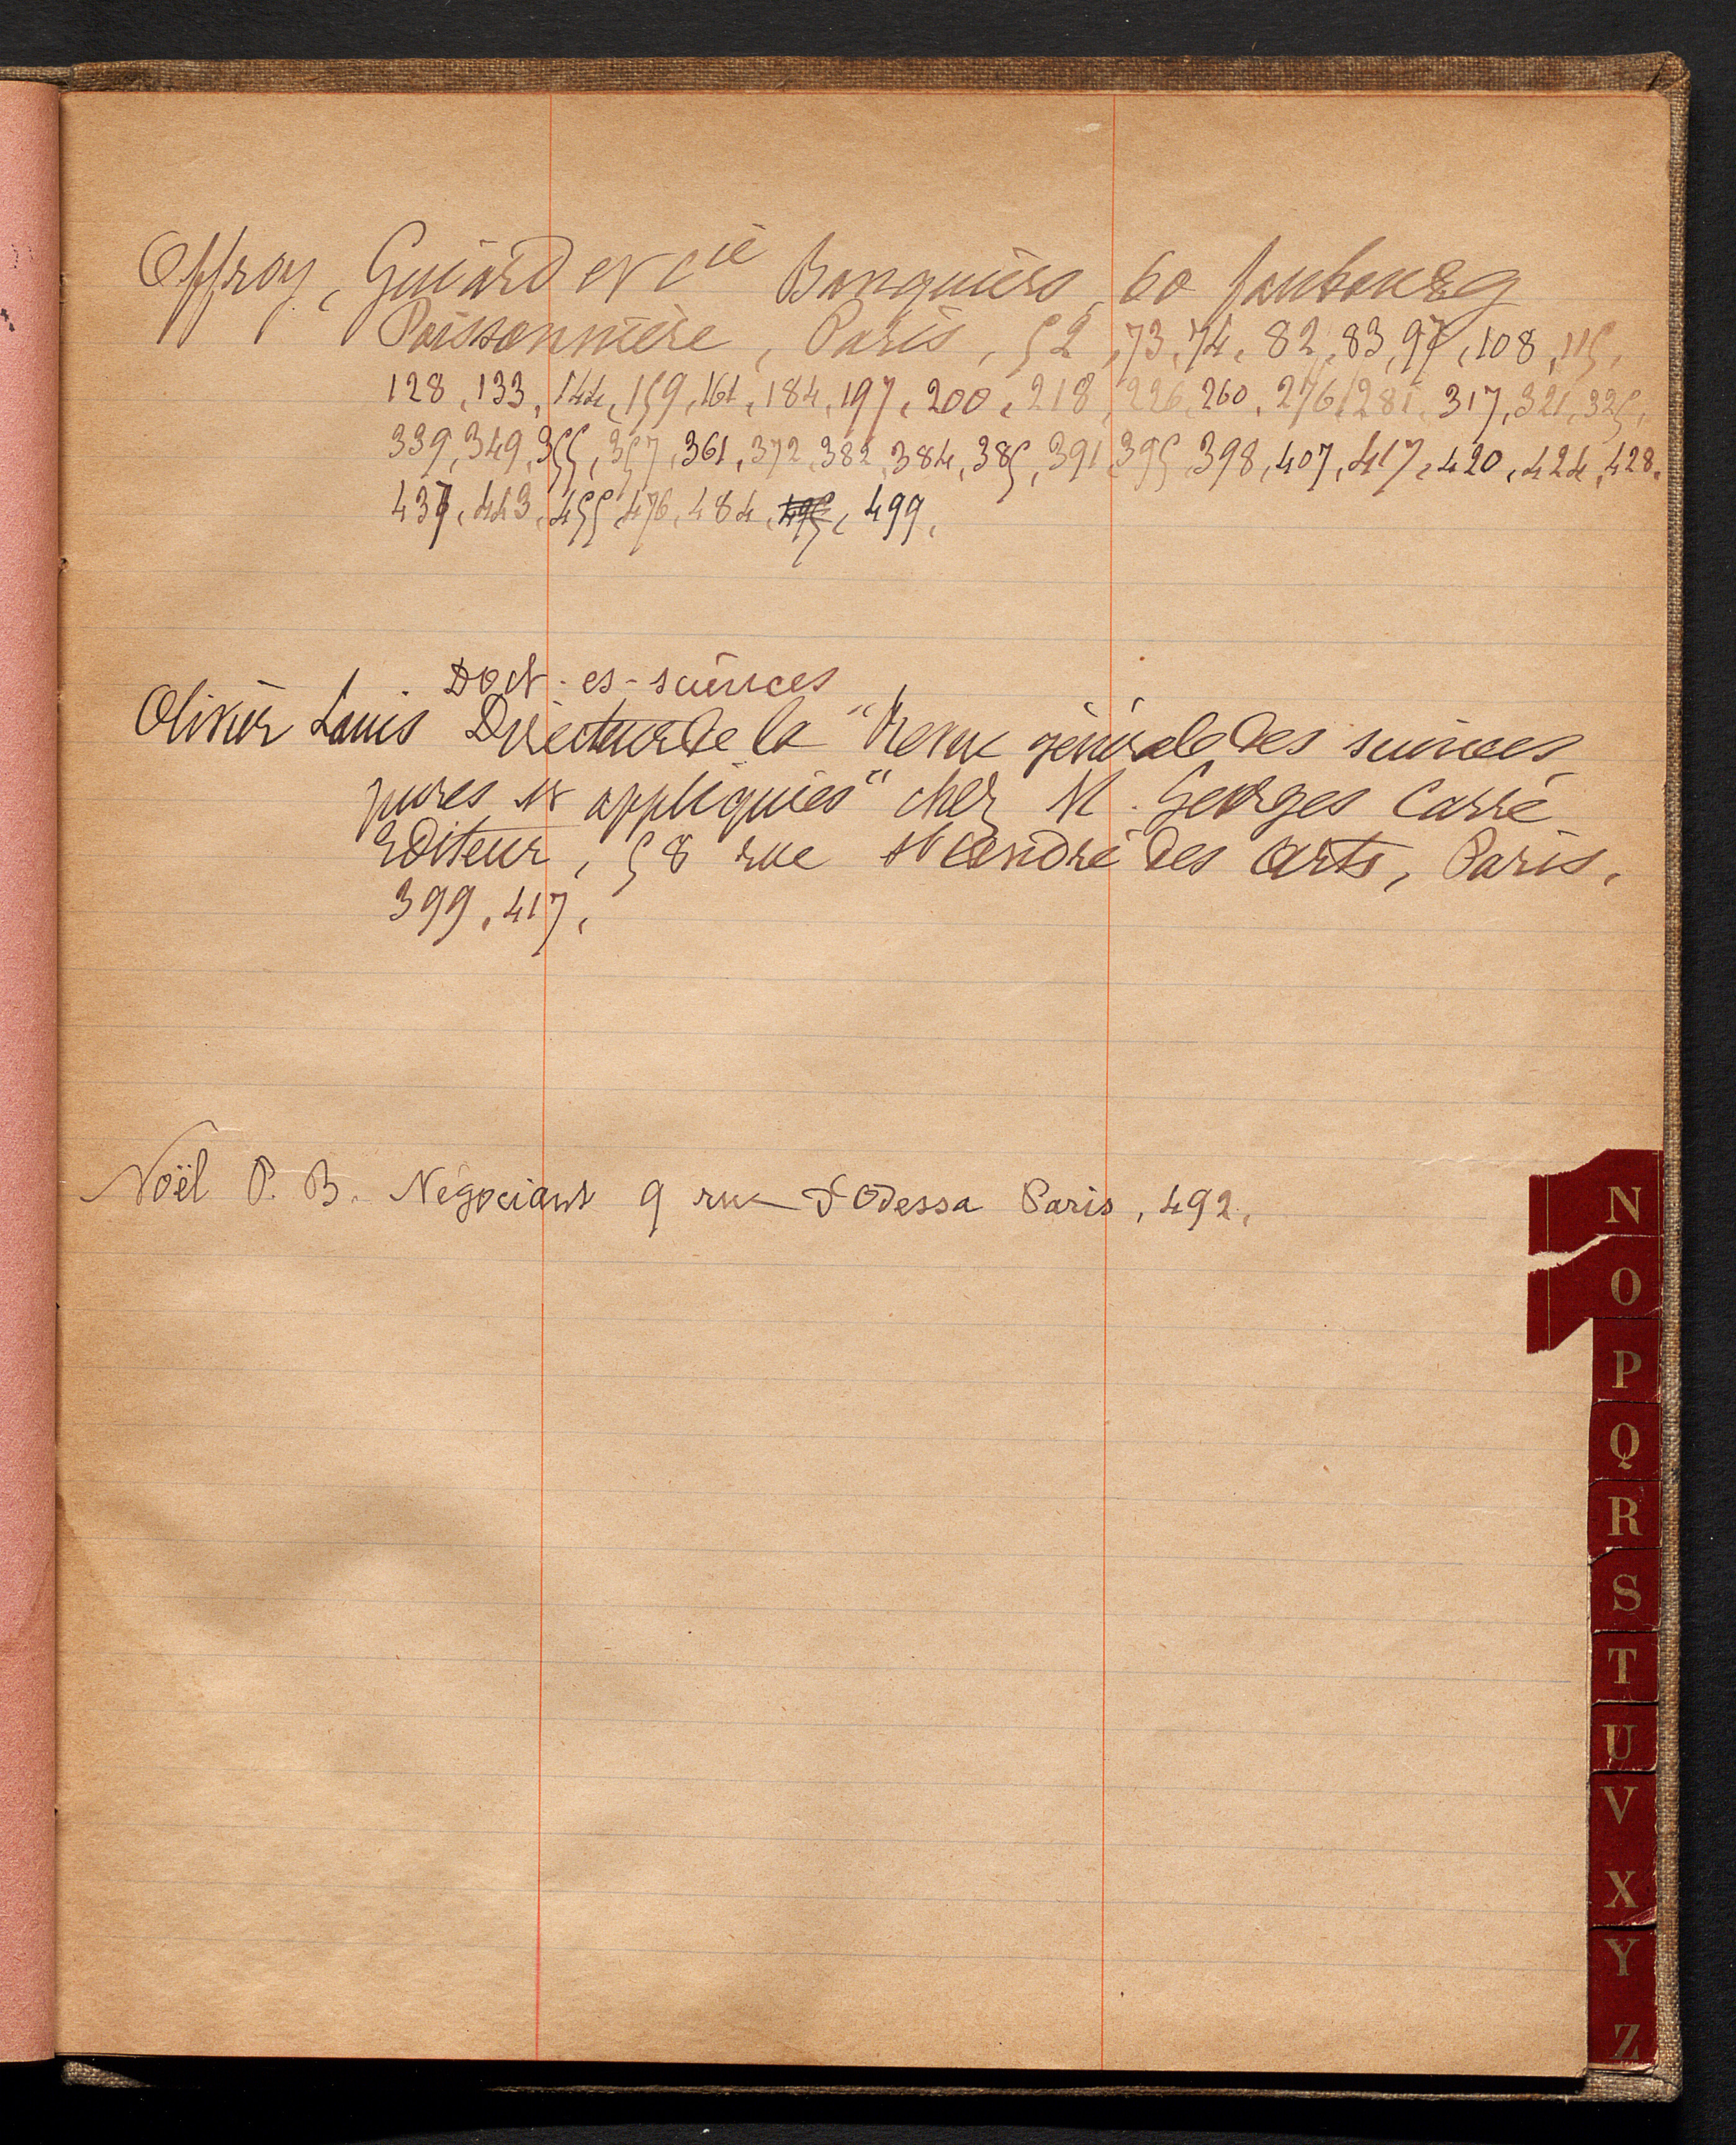 Offroy, Guiard et Cie Banquiers, 60 faubourg
Poissonnière, Paris, 52, 73, 74, 82, 83, 97, 108, 115,
128, 133, 144, 159, 161, 184, 197, 200, 218, 226, 260, 276, 281, 317, 321, 325,
339, 349, 355, 357, 361, 372, 382, 384, 385, 391, 395, 398, 407, 417, 420, 424, 428.
437, 443, 455, 476, 484, 495, 499,
Doct-es-sciences
Olivier Louis Directeur de la "Revue générale des sciences
pures et appliquées" chez M. Georges Carré
Editeur, 58 rue St André des Arts, Paris,
399, 417,
Noël P. B. Négociant 9 rue d'Odessa Paris, 492,
N
O
P
Q
R
S
T
U
V
X
Y
Z